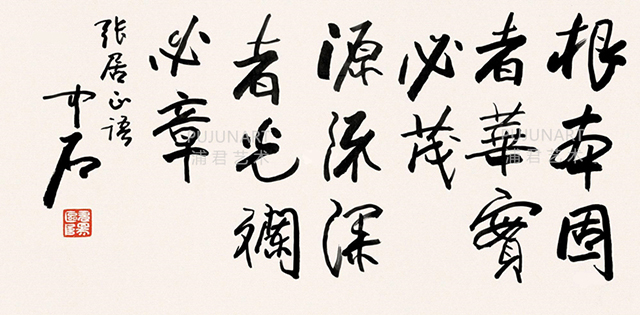 根本固
者華實
必茂
源流深
者光斓
必章
張居正語
中石
YUJUNART
浦君艺术
YUJUNART
浦君艺术